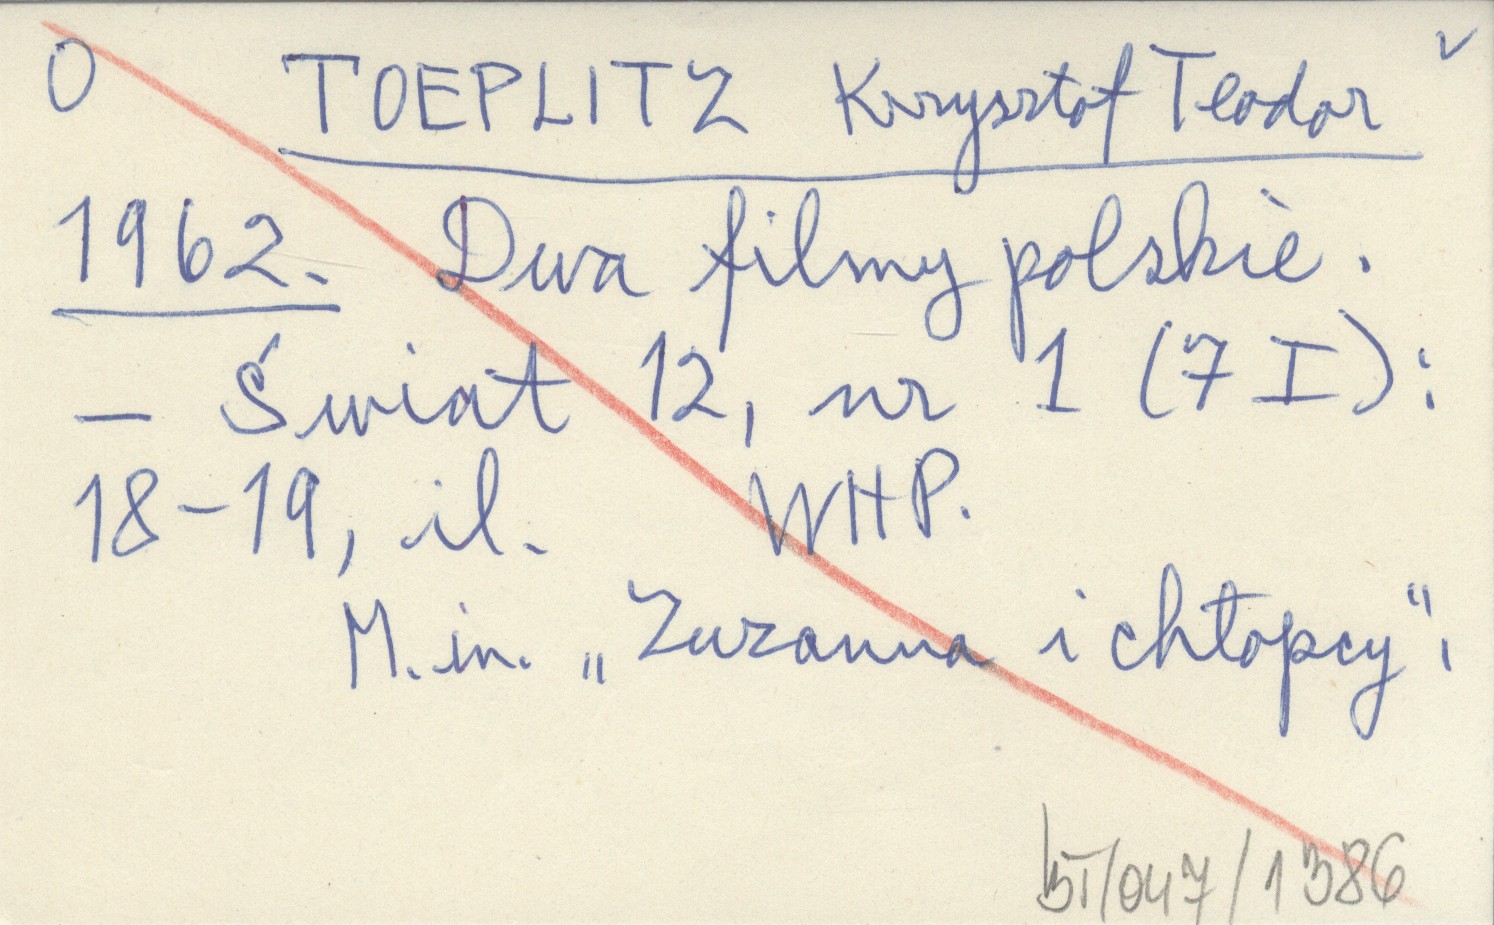 O TOEPLITZ Krzysztof Teodor
1962. Dwa filmy polskie.
– Świat 12, nr 1 (7 I):
18–19, il. WHP.
M.in. „Zuzanna i chłopcy".
BI/047/1386